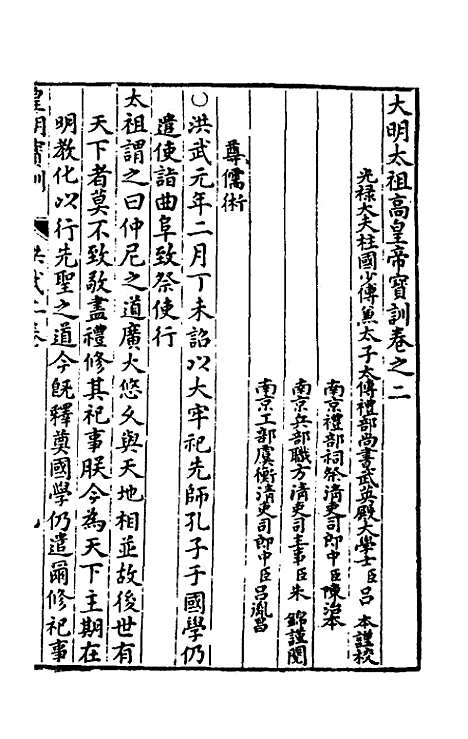 大明太祖高皇帝寶訓卷之二
光祿大夫柱國少傅兼太子太傅禮部尚書武英殿大學士臣呂 本謹校
南京禮部祠祭清吏司郎中臣陳治本
南京兵部職方清吏司主事臣朱 錦謹閱
南京工部虞衡清吏司郎中臣呂胤昌
尊儒術
○洪武元年二月丁未詔以大牢祀先師孔子于國學仍
遣使詣曲阜致祭使行
太祖謂之曰仲尼之道廣大悠久與天地相並故後世有
天下者莫不致敬盡禮修其祀事朕今為天下主期在
明教化以行先聖之道今既釋奠國學仍遣爾修祀事
皇明寶訓 洪武二卷